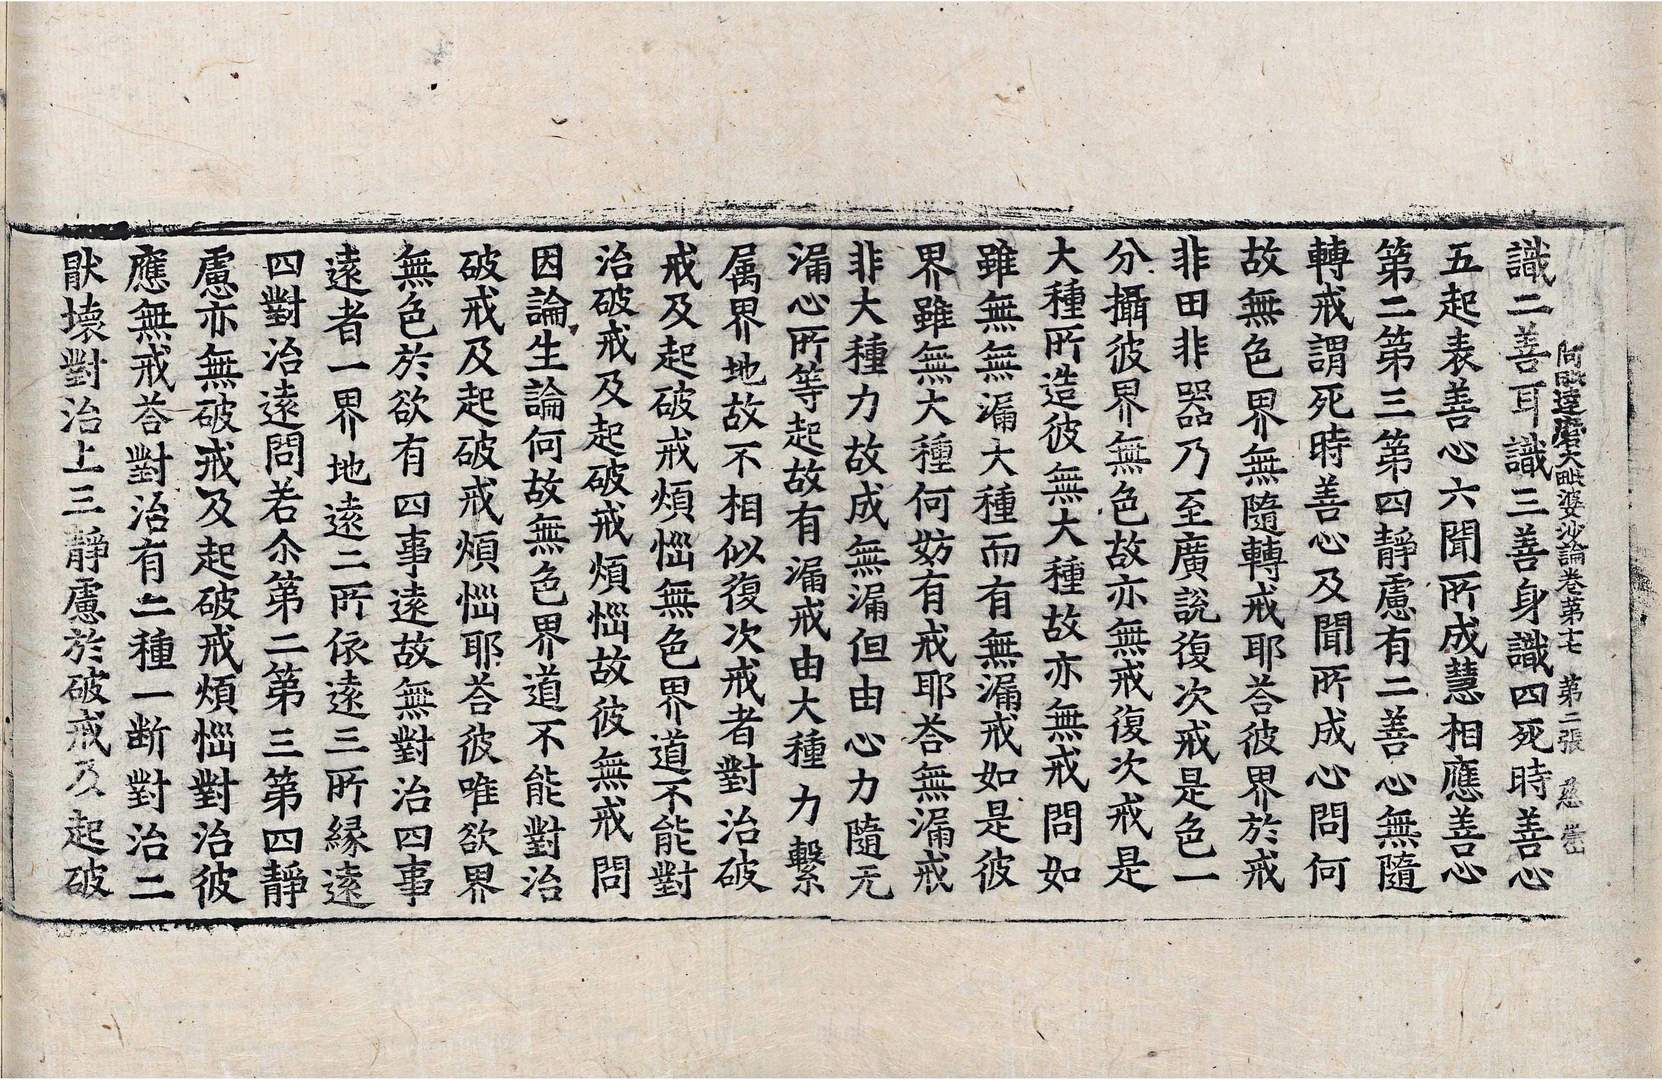 阿毗達磨大毗婆沙論卷第十七　第二張　慈
識二善耳識三善身識四死時善心
五起表善心六聞所成慧相應善心
第二第三第四靜慮有二善心無隨
轉戒謂死時善心及聞所成心問何
故無色界無隨轉戒耶荅彼界於戒
非田非器乃至廣說復次戒是色一
分攝彼界無色故亦無戒復次戒是
大種所造彼無大種故亦無戒問如
雖無無漏大種而有無漏戒如是彼
界雖無大種何妨有戒耶荅無漏戒
非大種力故成無漏但由心力隨无
漏心所等起故有漏戒由大種力繫
属界地故不相似復次戒者對治破
戒及起破戒煩惱無色界道不能對
治破戒及起破戒煩惱故彼無戒問
因論生論何故無色界道不能對治
破戒及起破戒煩惱耶荅彼唯欲界
無色於欲有四事遠故無對治四事
遠者一界地遠二所依遠三所緣遠
四對治遠問若尒第二第三第四靜
慮亦無破戒及起破戒煩惱對治彼
應無戒荅對治有二種一斷對治二
猒壞對治上三靜慮於破戒及起破